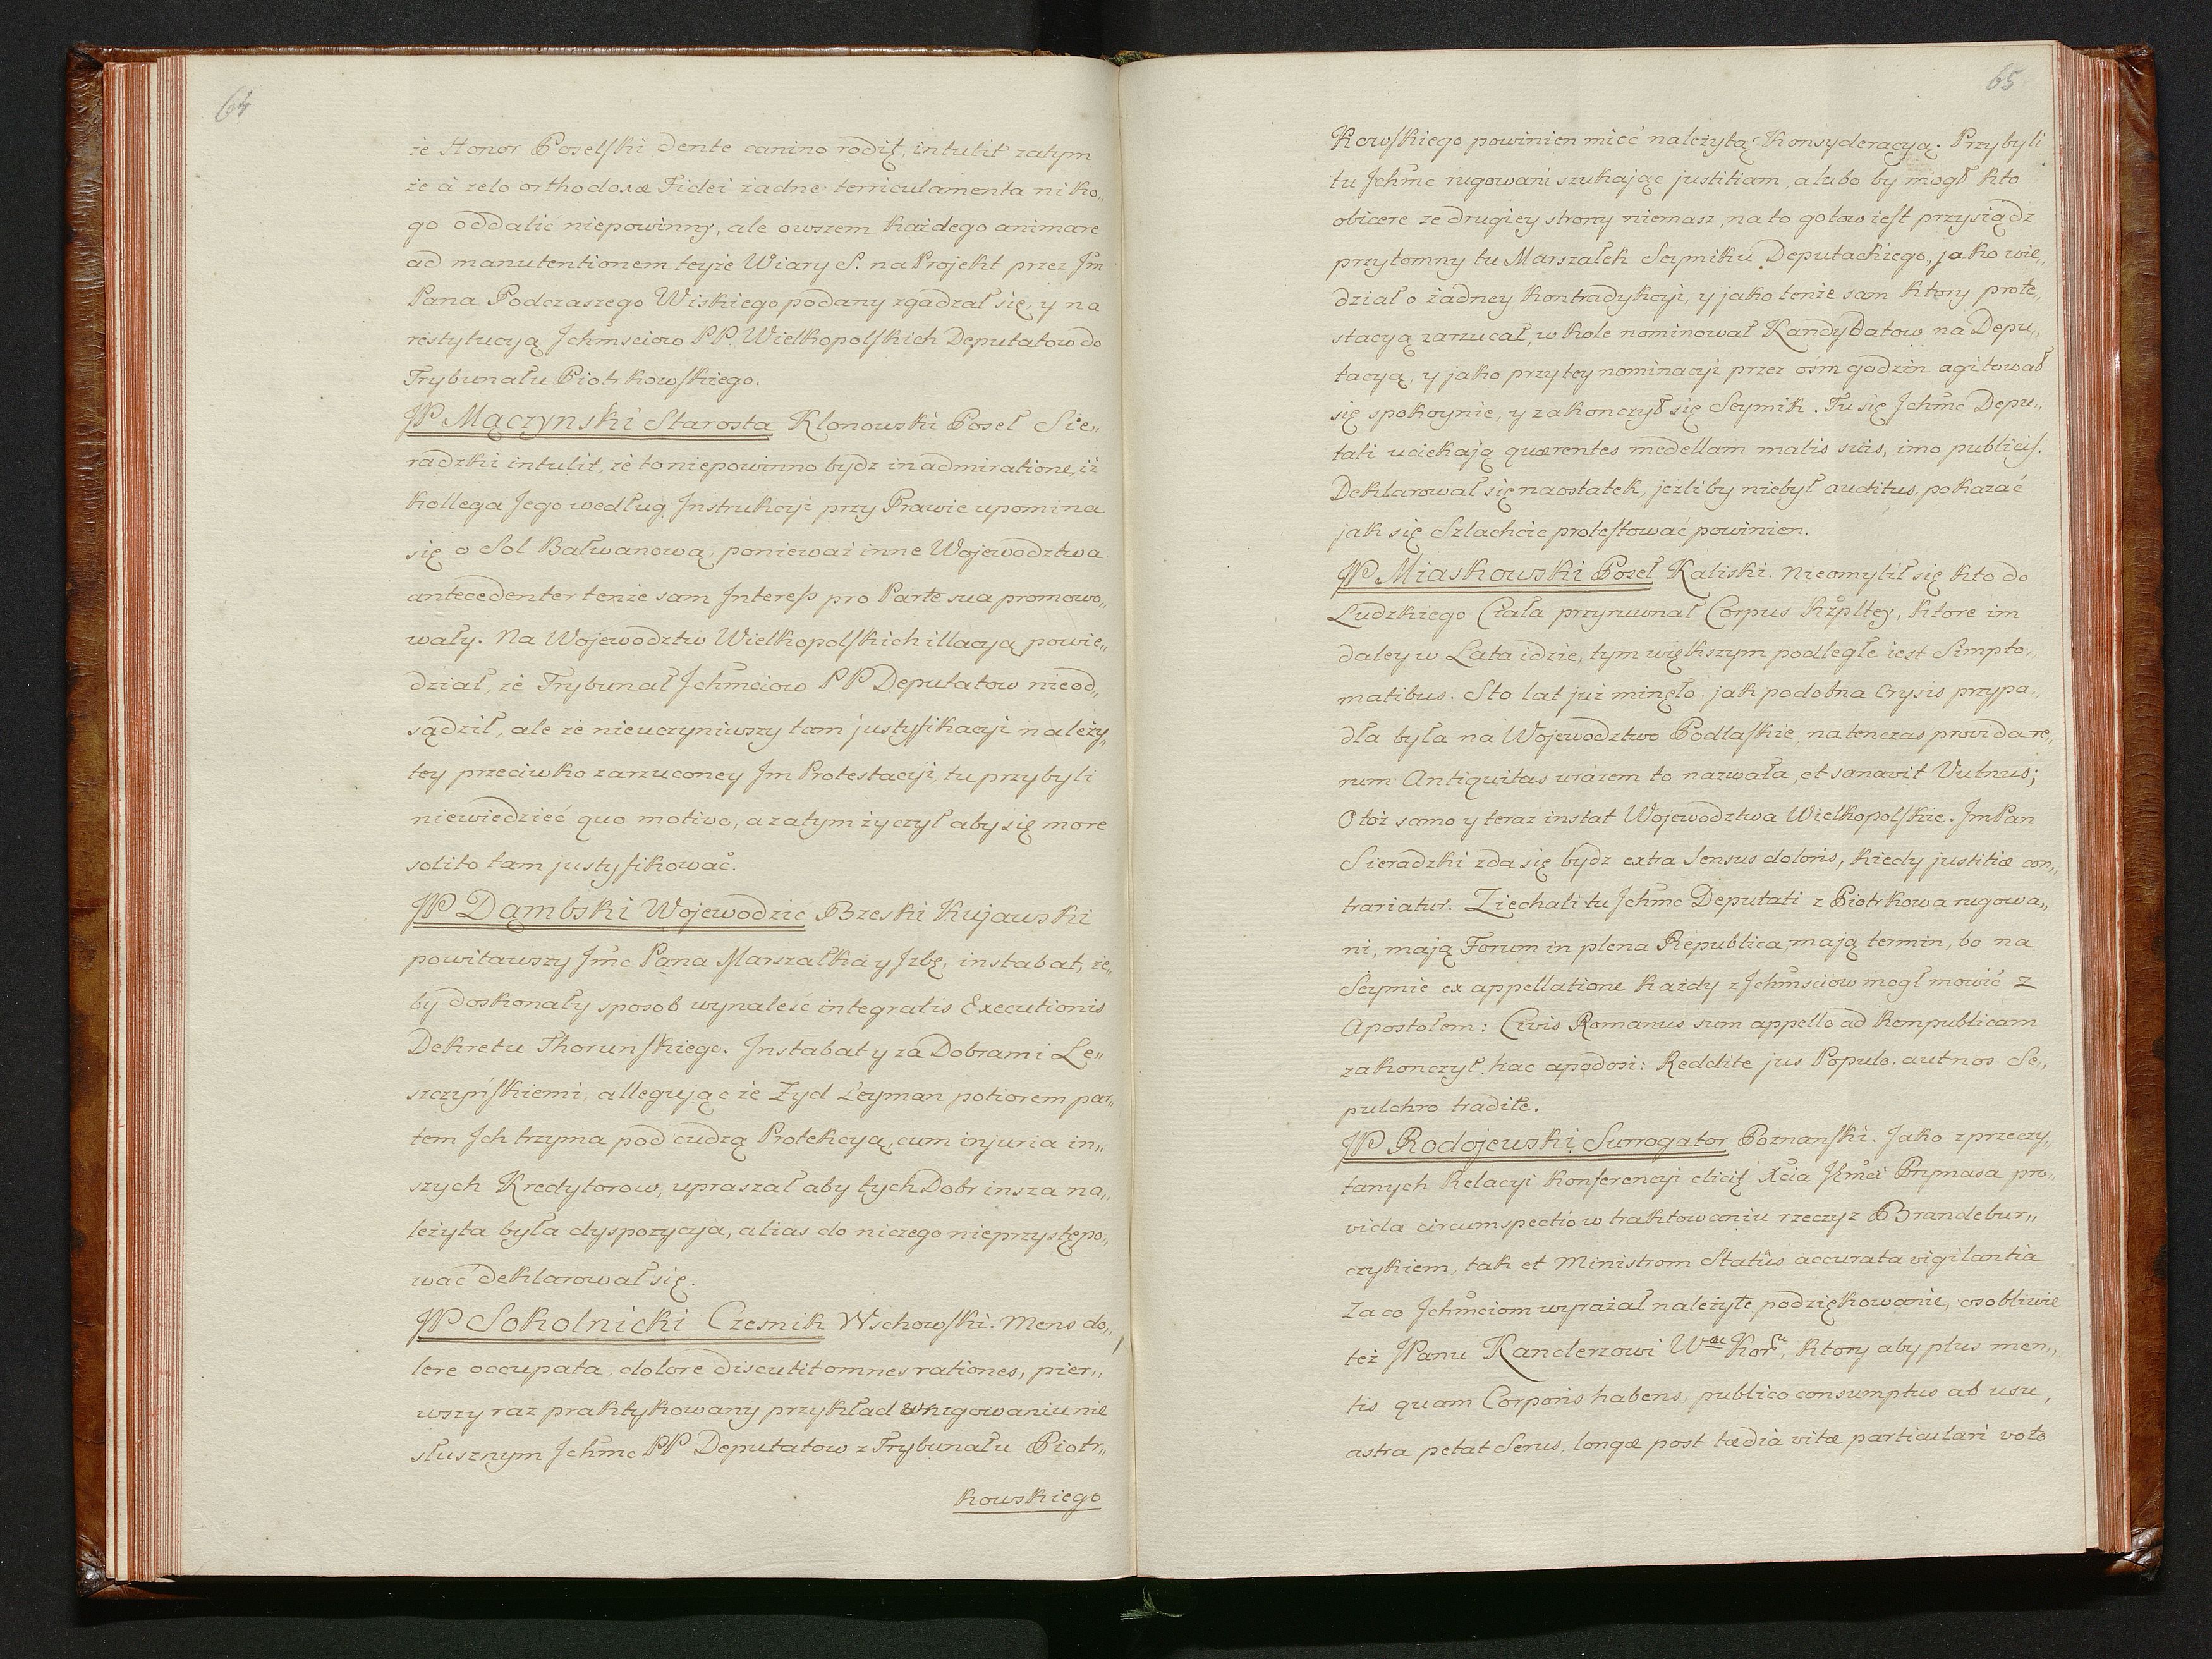 64
że Honor Poselski dente canino rodić, intulit zatym
że à zelo orthodoxæ Fidei żadne terriculamenta niko„
go oddalić niepowinny, ale owszem każdego animare
ad manutentionem teyże Wiary S. na Projekt przez Jm
Pana Podczaszego Wiskiego podany zgadzał się, y na
restytucyą Jchmsciow PP. Wielkopolskich Deputatow do
Trybunału Piotrkowskiego.
JP Mączynski Starosta Klonowski Poseł Sie„
radzki intulit, że to niepowinno bydz in admiratione, iż
Kollega Jego według Instrukcyi przy Prawie upomina
się o Sol Bałwanową, ponieważ inne Wojewodztwa
antecedenter tenże sam Interess pro Parte sua promowo„
wały. Na Wojewodztw Wielkopolskich illacyą powie„
dział, że Trybunał Jchmciow PP Deputatow nieod„
sądził, ale że nieuczyniwszy tam justyfikacyi należy„
tey przeciwko zarzuconey Jm Protestacyi, tu przybyli
niewiedzieć quo motivo, a zatym życzył aby się more
solito tam justyfikować.
JP Dąmbski Wojewodzic Brzeski Kujawski
powitawszy Jmc Pana Marszałka y Jzbę, instabat, że„
by doskonały sposob wynaleść integralis Executionis
Dekretu Thorunskiego. Instabat y za Dobrami Le„
szczyńskiemi, allegując że Zyd Leyman potiorem par„
tem Jch trzyma pod cudzą Protekcyą, cum injuria in„
szych Kredytorow, upraszał aby tych Dobr insza na„
leżyta była dyspozycya, alias do niczego nieprzystępo„
wać deklarował się.
JP Sokolnicki Czesnik Wschowski. Mens do„
lere occupata, dolore discutit omnes rationes, pier„
wszy raz praktykowany przykład w rugowaniu nie
słusznym Jchmc PP Deputatow z Trybunału Piotr„
kowskiego
65
Kowskiego powinien mieć należytą Konsyderacyą. Przybyli
tu Jchmc rugowani szukając justitiam, alubo by mogł kto
obicere ze drugiey strony niemasz, na to gotow iest przysiądz
przytomny tu Marszałek Seymiku Deputackiego, jako wie„
dział o żadney kontradykcyi, y jako tenże sam ktory prote„
stacyą zarzucał, w kole nominował Kandydatow na Depu„
tacyą, y jako przy tey nominacyi przez ośm godzin agitował
się spokoynie, y zakonczył się Seymik. Tu się Jchmc Depu„
tati uciekają quærentes medellam malis suis, imo publicis.
Deklarował się naostatek, jeżliby niebył auditus, pokazać
jak się Szlachcic protestować powinien.
JP Miaskowski Poseł Kaliski. Nieomylił się kto do
Ludzkiego Ciała przyruwnał Corpus Rzpltey, ktore im
daley w Lata idzie, tym większym podległe iest Simpto„
matibus. Sto lat już minęło, jak podobna Crysis przypa„
dła była na Wojewodztwo Podlaskie, natenczas provida re„
rum Antiquitas urazem to nazwała, et sanavit Vulnus;
O toż samo y teraz instat Wojewodztwa Wielkopolskie. Jm Pan
Sieradzki zda się bydz extra sensus doloris, kiedy justitiæ con„
trariatur. Ziechali tu Jchmc Deputati z Piotrkowa rugowa„
ni, mają Forum in plena Republica, mają termin, bo na
Seymie ex appellatione każdy z Jchmsciow mogł mowić z
Apostołem: Civis Romanus sum appello ad Rempublicam
zakonczył hac apodosi: Reddite jus Populo, aut nos Se„
pulchro tradite.
JP Rodojewski Surrogator Poznanski. Jako z przeczy„
tanych Relacyi Konferencyi elicit Xcia Jmci Prymasa pro„
vida circumspectio w traktowaniu rzeczy z Brandebur„
czykiem, tak et Ministrom Statûs accurata vigilantia
Za co Jchmciom wyrażał należyte podziękowanie, osobliwie
też JPanu Kanclerzowi Wu Kor, ktory aby plus men„
tis quam Corporis habens, publico consumptus ab usu,
astra petat Serus, longæ post tædia vitæ particulari voto